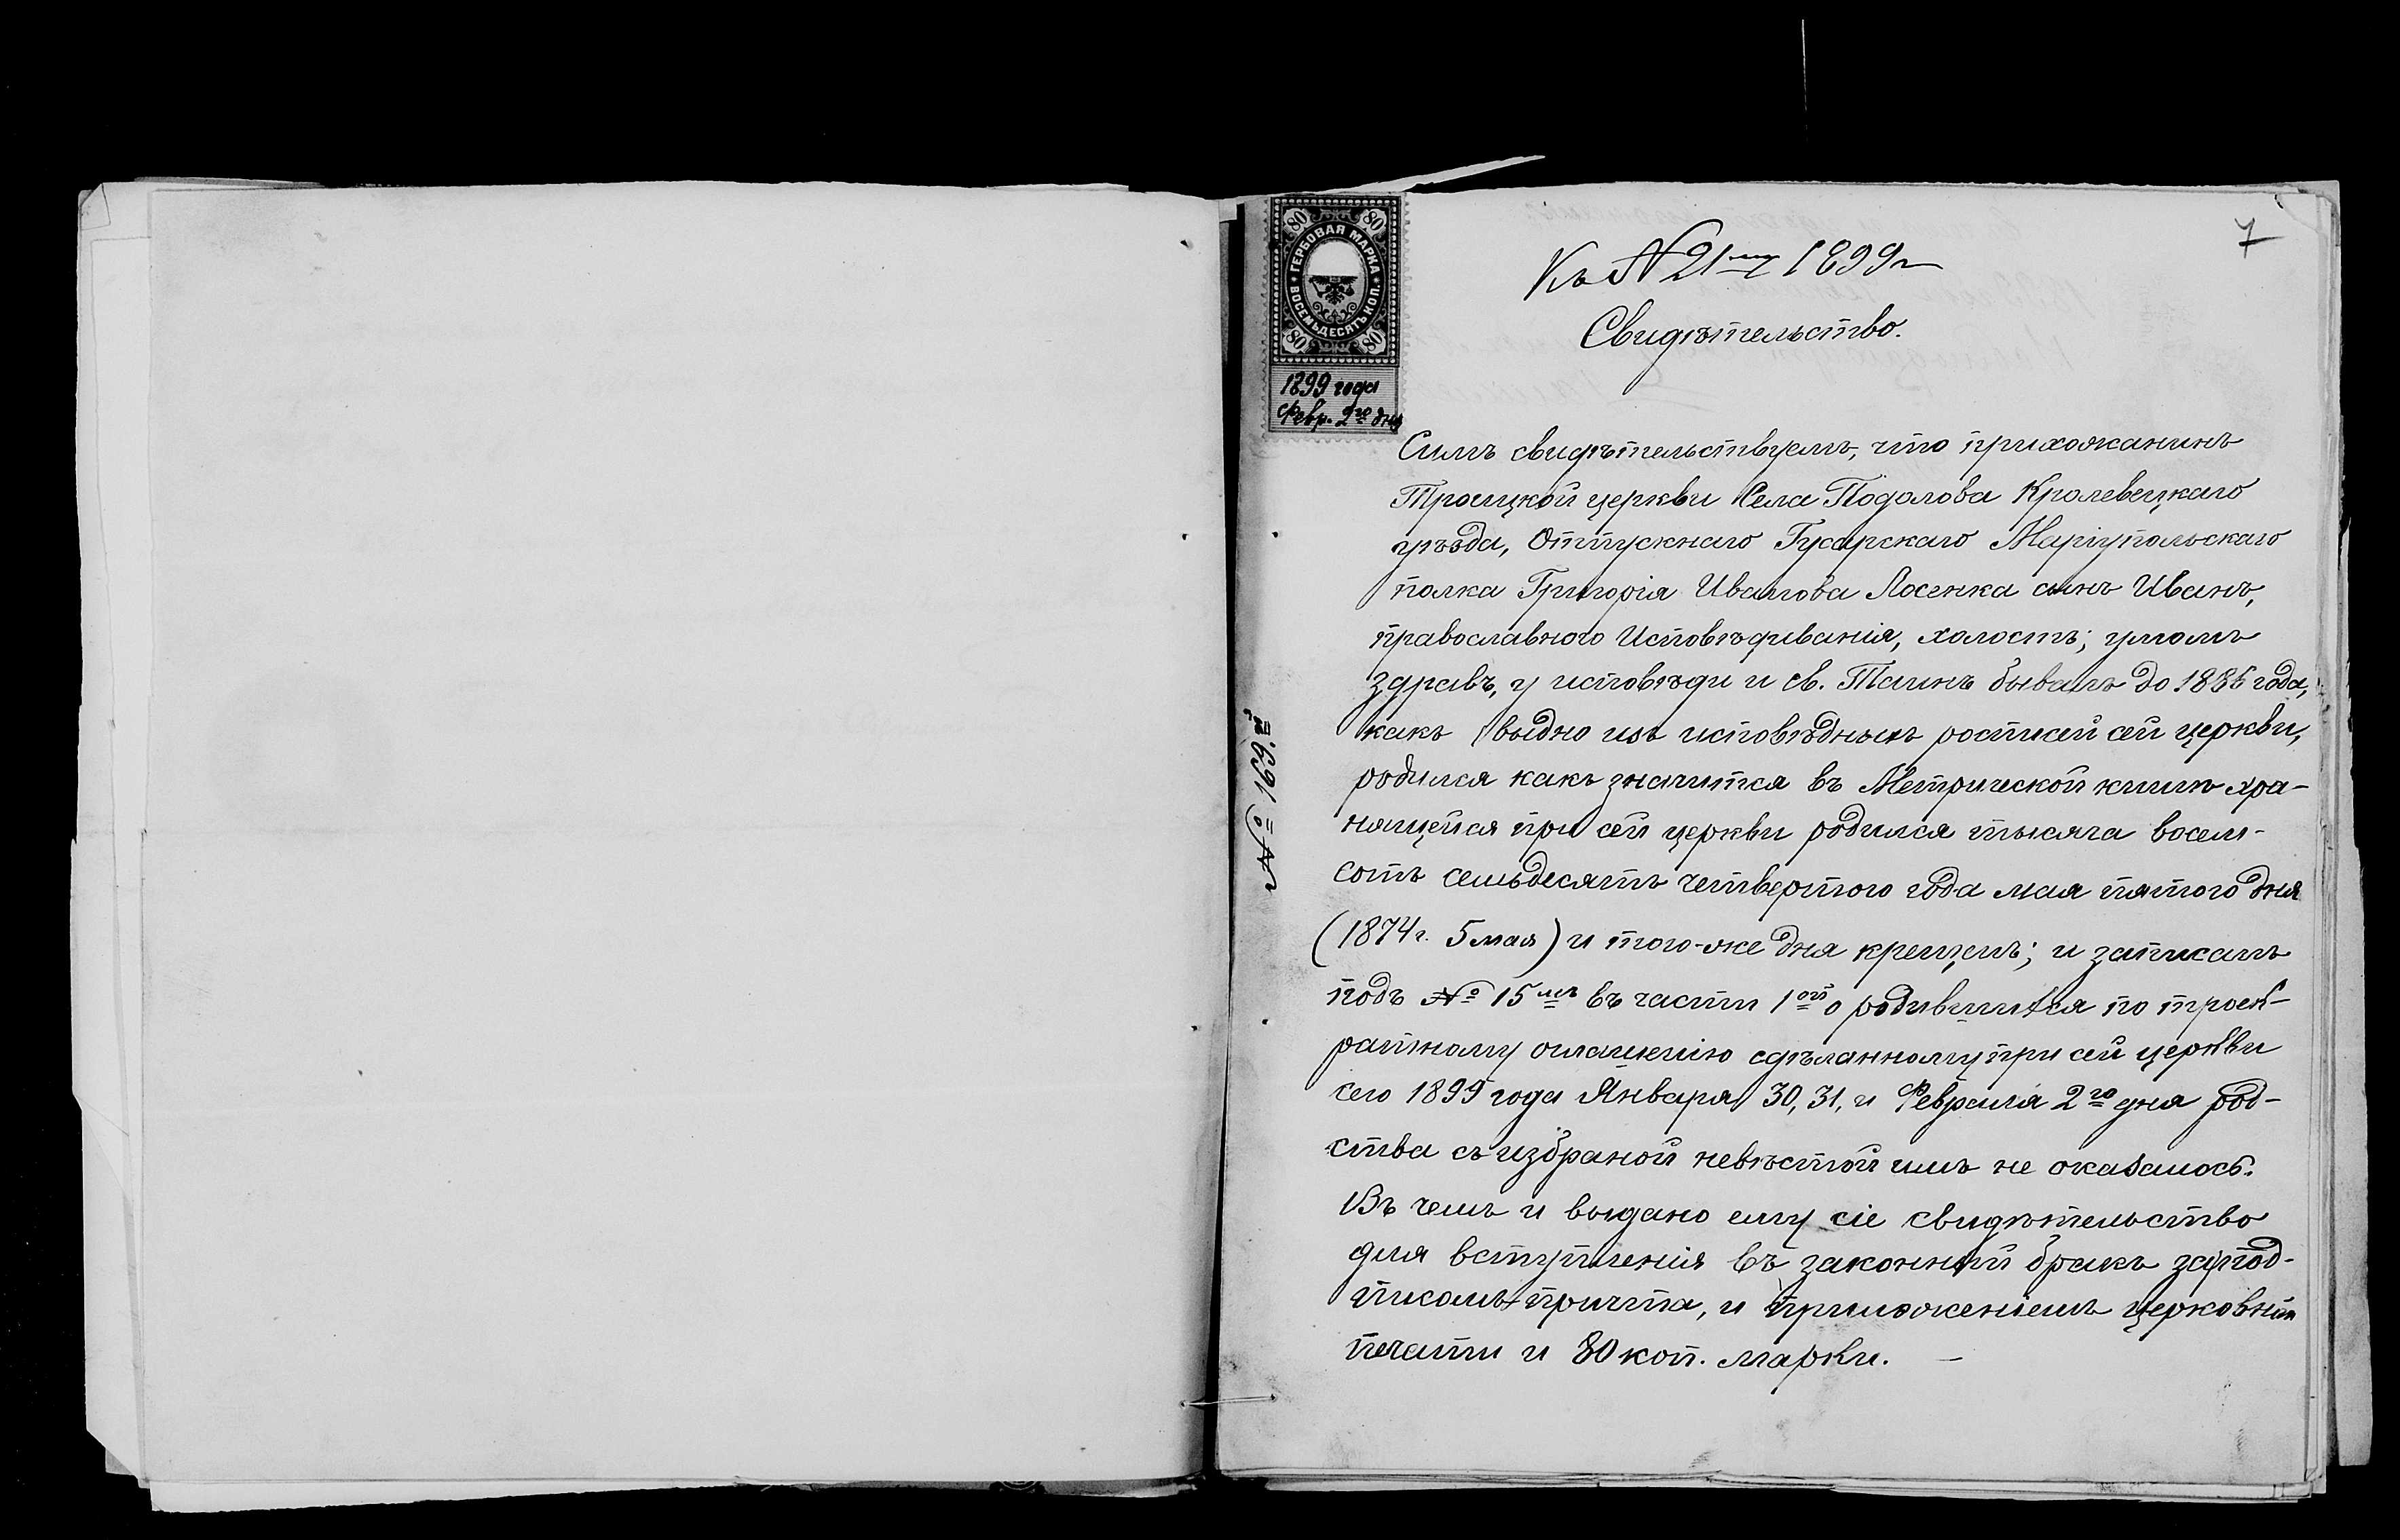 7
80 80
ГЕРБОВАЯ МАРКА
ВОСЕМЬДЕСЯТЪ КОП.
80 80
1899 года
Февр. 2го дня
Къ №21му 1899г
Свидѣтельство.
№ 169.
Симъ свидѣтельствуемъ, что прихожанинъ
Троицкой церкви Села Подолова Кролевецкаго
уѣзда, Отпускнаго Гусарскаго Маріупольскаго
полка Григорія Иванова Лосенка сынъ Иванъ,
православного Исповѣдиванія, холостъ; умомъ
здравъ, у исповѣди и св. Таинъ бывалъ до 1886 года,
какъ выдно изъ исповѣдныхъ росписей сей церкви,
родился какъ значится въ Метрической книгѣ хра-
нящейся при сей церкви родился тысяча восем-
сотъ семьдесятъ четвертого года мая пятого дня
(1874г. 5 мая) и того-же дня крещенъ; и записанъ
подъ № 15мъ въ части 1ой о родившихся по троек-
ратному оглашенію сдѣланному при сей церкви
сего 1899 года Января 30, 31, и Февраля 2го дня род-
ства съ избраной невѣстой имъ не оказалось.
Въ чемъ и выдано ему сіе свидѣтельство
для вступленія въ законный бракъ за под-
писомъ причта, и приложеніемъ церковной
печати и 80 коп. марки. —